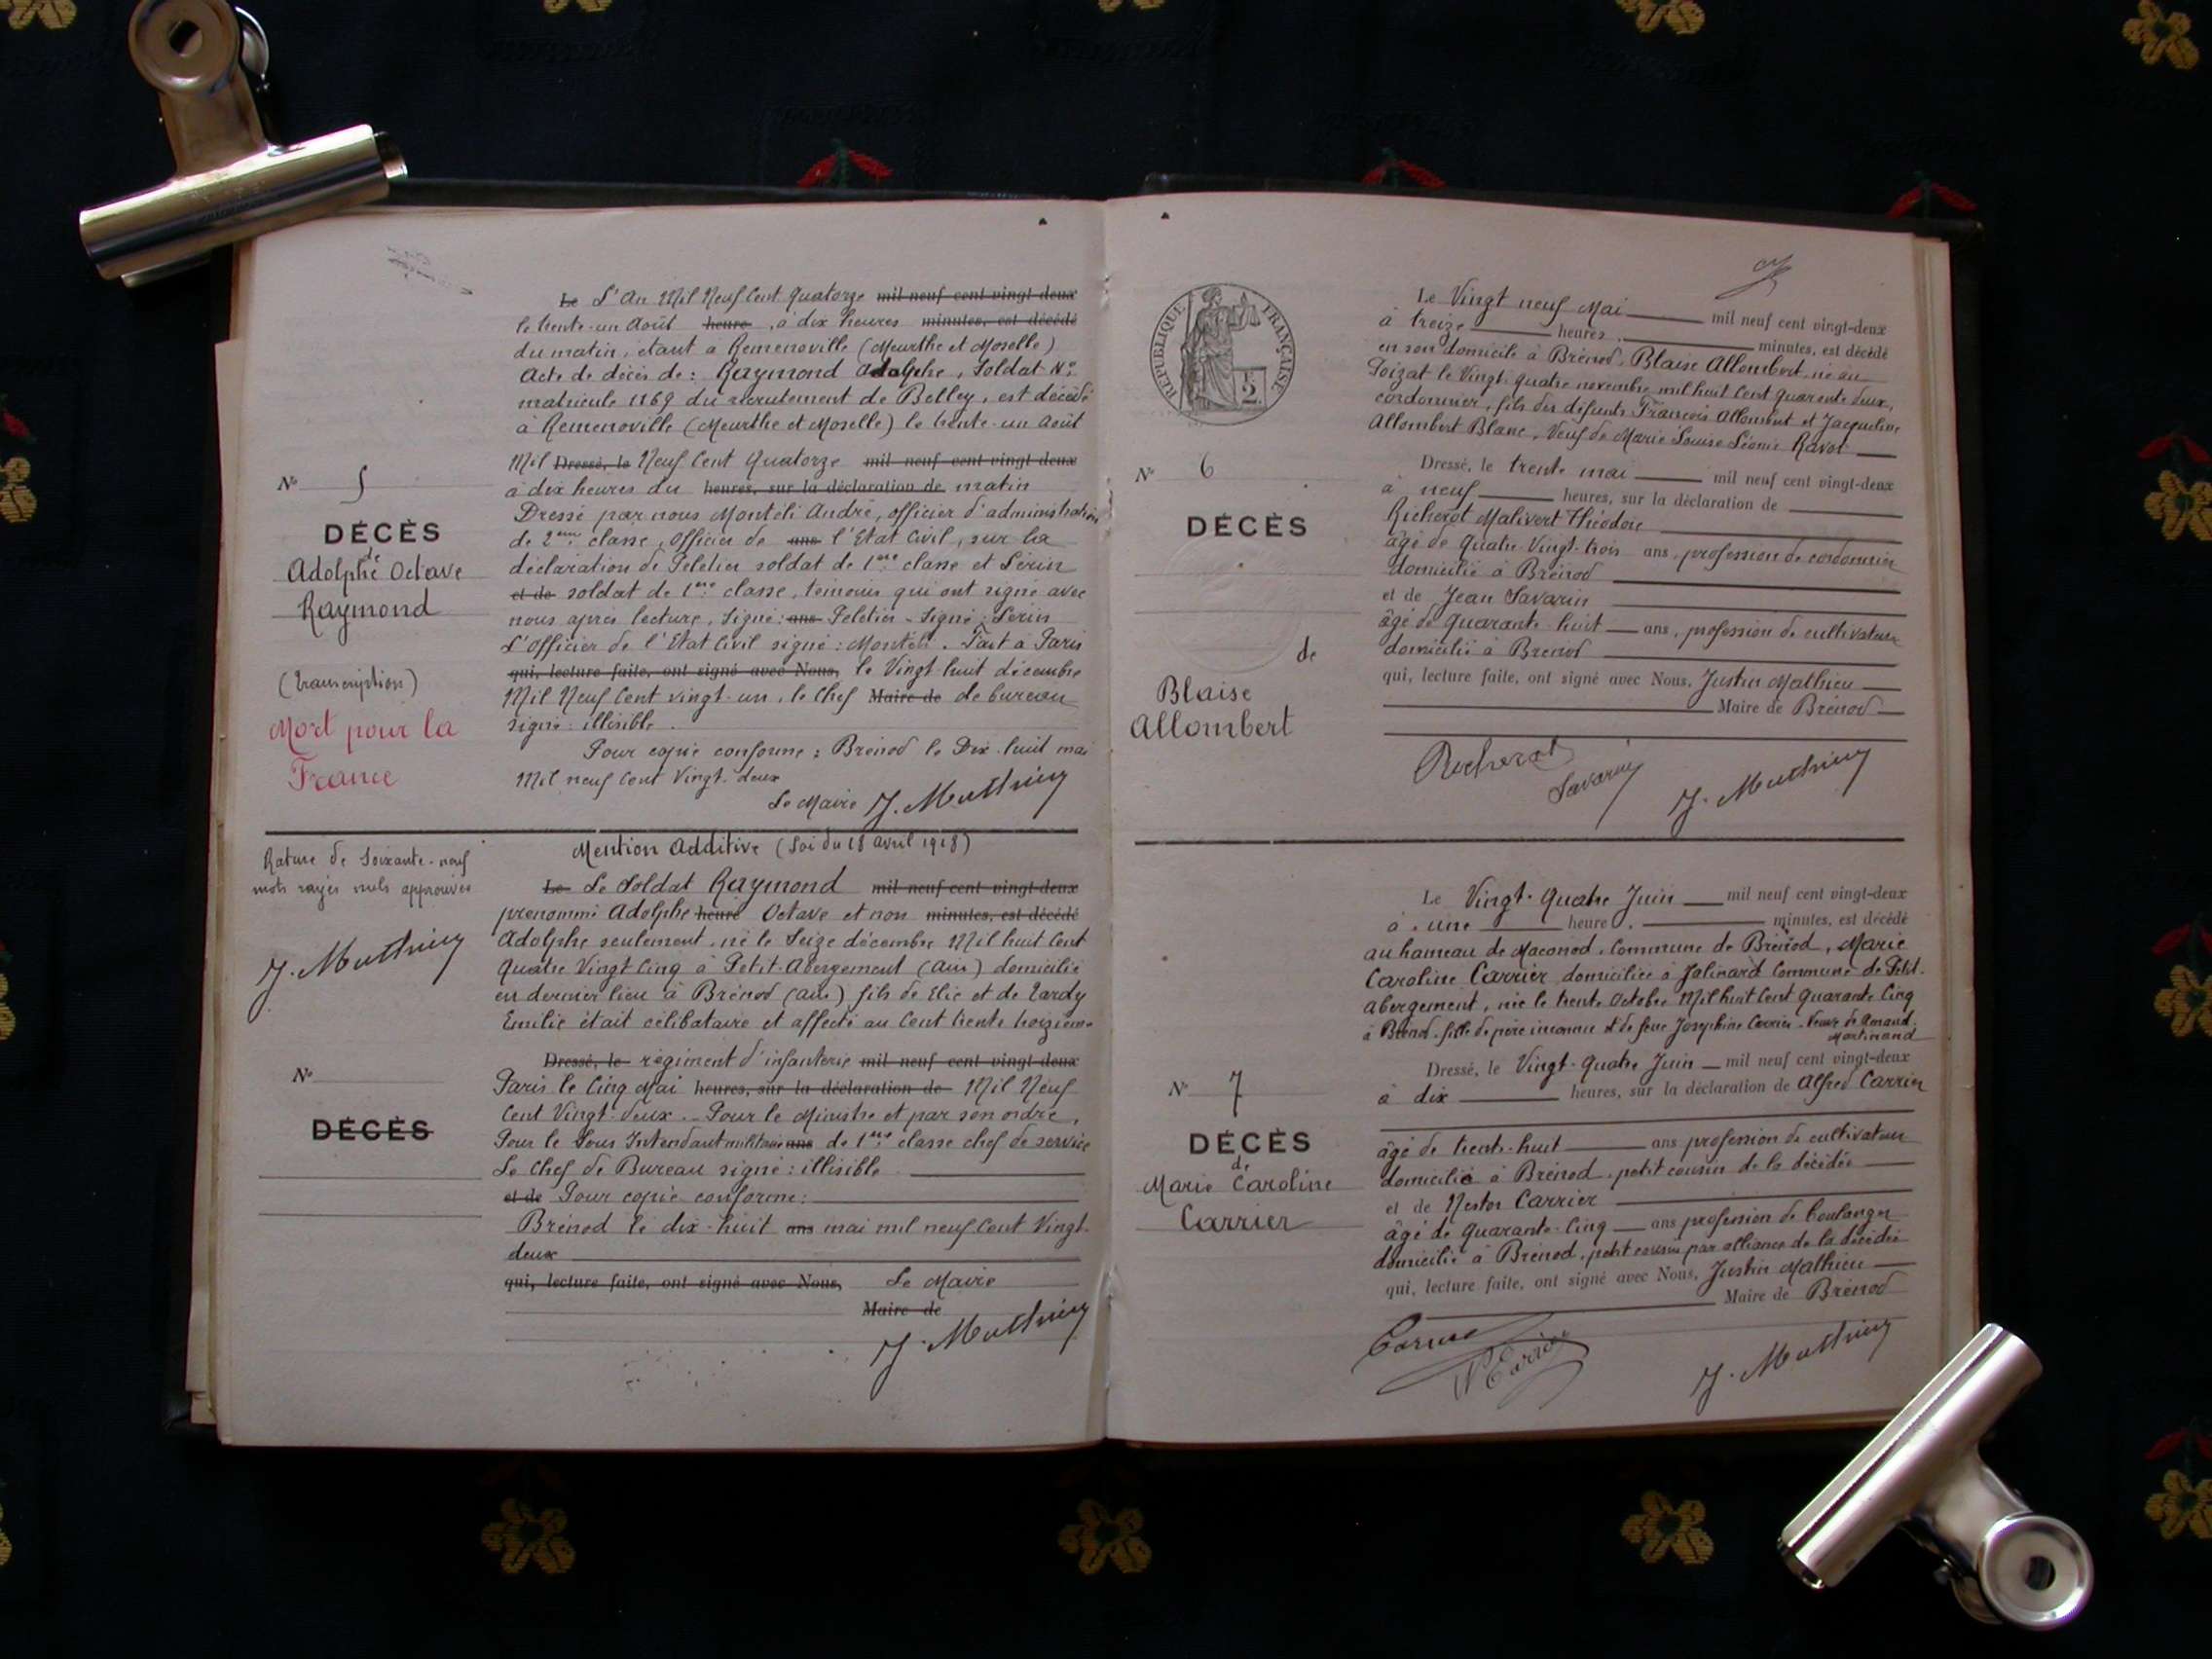 Le L'An Mil Neuf Cent Quatorze mil neuf cent vingt-deux
le trente-un Août heure, à dix heures minutes, est décédé
du matin, étant à Remenoville (Meurthe et Moselle)
Acte de décès de : Raymond Adolphe, Soldat N°
matricule 1169 du recrutement de Belley, est décédé
à Remenoville (Meurthe et Moselle) le trente-un Août
Mil Dressé, le Neuf Cent Quatorze mil neuf cent vingt-deux
à dix heures du heures, sur la déclaration de matin
Dressé par nous Montéli André, officier d'administration
de 2eme classe, Officier de ans l'Etat Civil, sur la
déclaration de Peletier soldat de 1ere classe et Serin
et de soldat de 1ere classe, témoins qui ont signé avec
nous après lecture, Signé : ans Peletier - Signé : Serin
L'Officier de l'Etat Civil signé : Montéli. Fait à Paris
qui, lecture faite, ont signé avec Nous, le Vingt huit décembre
Mil Neuf Cent vingt-un, le Chef Maire de de bureau
signé : illisible.
Pour copie conforme : Brénod le Dix-huit mai
Mil neuf Cent Vingt-deux
Le Maire J. Mathieu
N° 5
DÉCÈS
de
Adolphe Octave
Raymond
(Transcription)
Mort pour la
France
Rature de Soixante-neuf
mots rayés nuls approuvés
J. Mathieu
Mention Additive (Loi du 18 avril 1918)
Le Le Soldat Raymond mil neuf cent vingt-deux
prénommé Adolphe heure Octave et non minutes, est décédé
Adolphe seulement, né le Seize décembre Mil huit Cent
Quatre Vingt Cinq à Petit-Abergement (Ain) domicilié
en dernier lieu à Brénod (Ain), fils de Elie et de Tardy
Emilie était célibataire et affecté au Cent trente troizième
Dressé, le régiment d'infanterie mil neuf cent vingt-deux
Paris le Cinq Mai heures, sur la déclaration de Mil Neuf
Cent Vingt-deux. - Pour le Ministre et par son ordre,
Pour le Sous Intendant militaire ans de 1ere classe chef de service
Le Chef de Bureau signé : illisible
et de Pour copie conforme :
Brénod le dix-huit ans mai mil neuf Cent Vingt-
deux
qui, lecture faite, ont signé avec Nous, Le Maire
Maire de
J. Mathieu
N°
DÉCÈS
RÉPUBLIQUE FRANÇAISE
Le Vingt neuf Mai mil neuf cent vingt-deux
à treize heures, minutes, est décédé
en son domicile à Brénod, Blaise Allombert, né au
Poizat le Vingt-quatre novembre mil huit Cent quarante deux,
cordonnier, fils des défunts François Allombert et Jacqueline
Allombert Blanc, Veuf de Marie Louise Léonie Ravot
Dressé, le trente mai mil neuf cent vingt-deux
à neuf heures, sur la déclaration de
Richerot Malivert Théodore
âgé de Quatre-Vingt-trois ans, profession de cordonnier
domicilié à Brénod
et de Jean Savarin
âgé de Quarante-huit ans, profession de cultivateur
domicilié à Brénod
qui, lecture faite, ont signé avec Nous, Justin Mathieu
Maire de Brénod
Richerot
Savarin
J. Mathieu
N° 6
DÉCÈS
de
Blaise
Allombert
Le Vingt-Quatre Juin mil neuf cent vingt-deux
à une heure, minutes, est décédé
au hameau de Maconod, Commune de Brénod, Marie
Caroline Carrier domiciliée à Jalinard Commune de Petit-
Abergement, née le trente Octobre Mil huit Cent Quarante Cinq
à Brénod, fille de père inconnu et de feue Joséphine Carrier - Veuve de Amand
Martinand
Dressé, le Vingt-Quatre Juin mil neuf cent vingt-deux
à dix heures, sur la déclaration de Alfred Carrier
âgé de trente-huit ans profession de cultivateur
domicilié à Brénod, petit cousin de la décédée
et de Nestor Carrier
âgé de Quarante-Cinq ans profession de boulanger
domicilié à Brénod, petit cousin par alliance de la décédée
qui, lecture faite, ont signé avec Nous, Justin Mathieu
Maire de Brénod
Carrier
N Carrier
J. Mathieu
N° 7
DÉCÈS
de
Marie Caroline
Carrier